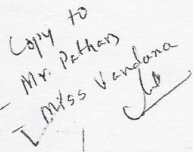 Copy to
- Mr. Pathan
Miss Vandana